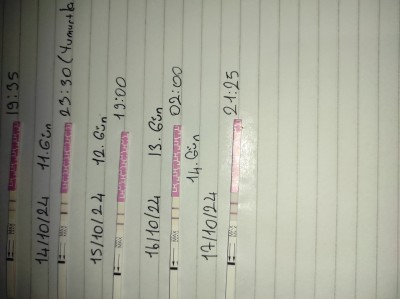 19:35
14/10/24 11.Gün
23:30 (Yumurtla
15/10/24 12.Gün
19:00
16/10/24 13.Gün
02:00
17/10/24 14.Gün
21:25